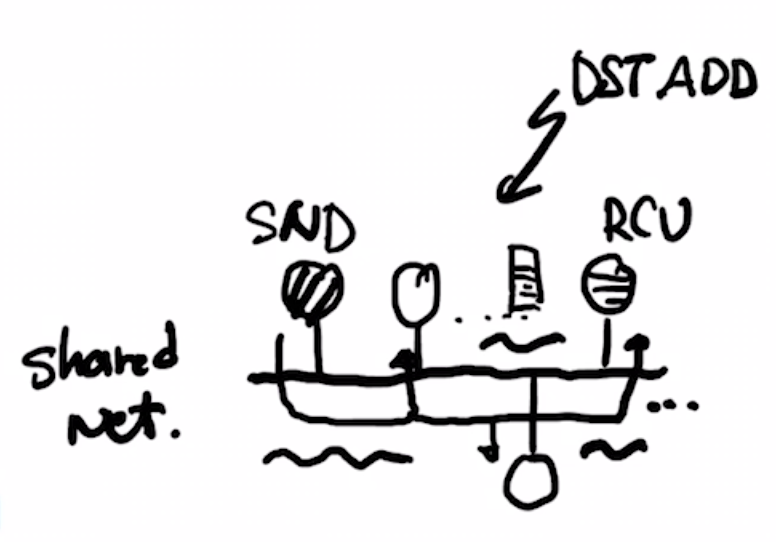 DST ADD
SND
RCV
shared
net.